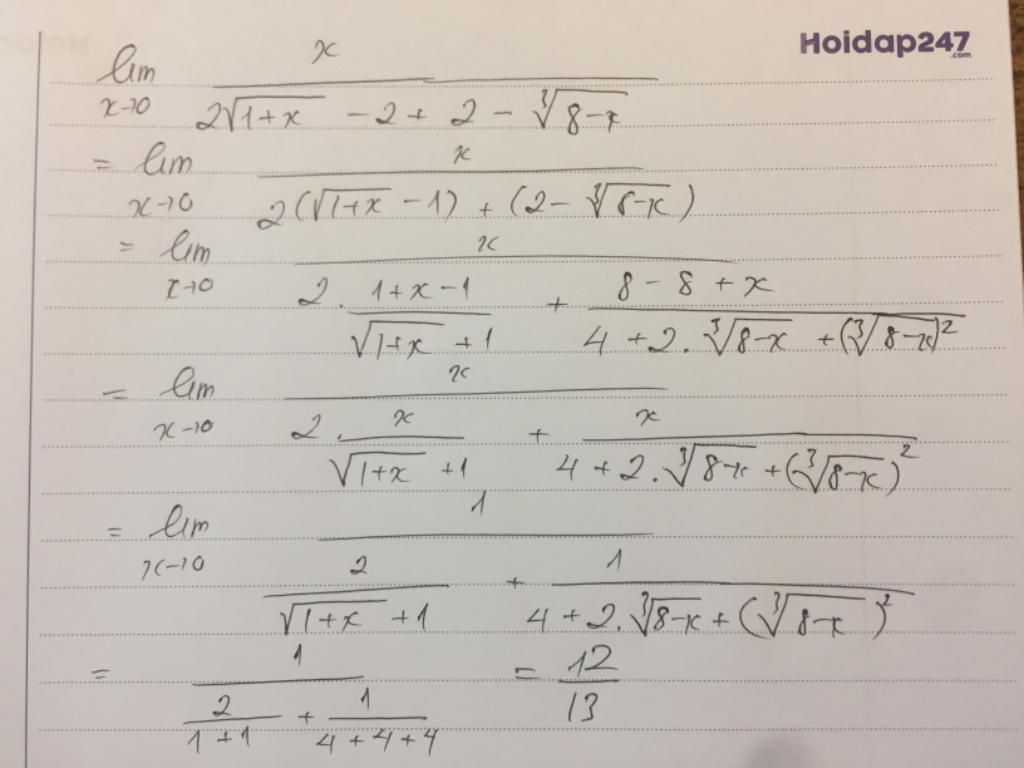 Hoidap247
.com
lim x→0 x / (2√(1+x) − 2 + 2 − ∛(8−x))
= lim x→0 x / (2(√(1+x) − 1) + (2 − ∛(8−x)))
= lim x→0 x / (2 . (1+x−1)/(√(1+x) + 1) + (8 − 8 + x)/(4 + 2.∛(8−x) + (∛(8−x))²))
= lim x→0 x / (2 . x/(√(1+x) + 1) + x/(4 + 2.∛(8−x) + (∛(8−x))²))
= lim x→0 1 / (2/(√(1+x) + 1) + 1/(4 + 2.∛(8−x) + (∛(8−x))²))
= 1 / (2/(1+1) + 1/(4+4+4)) = 12/13